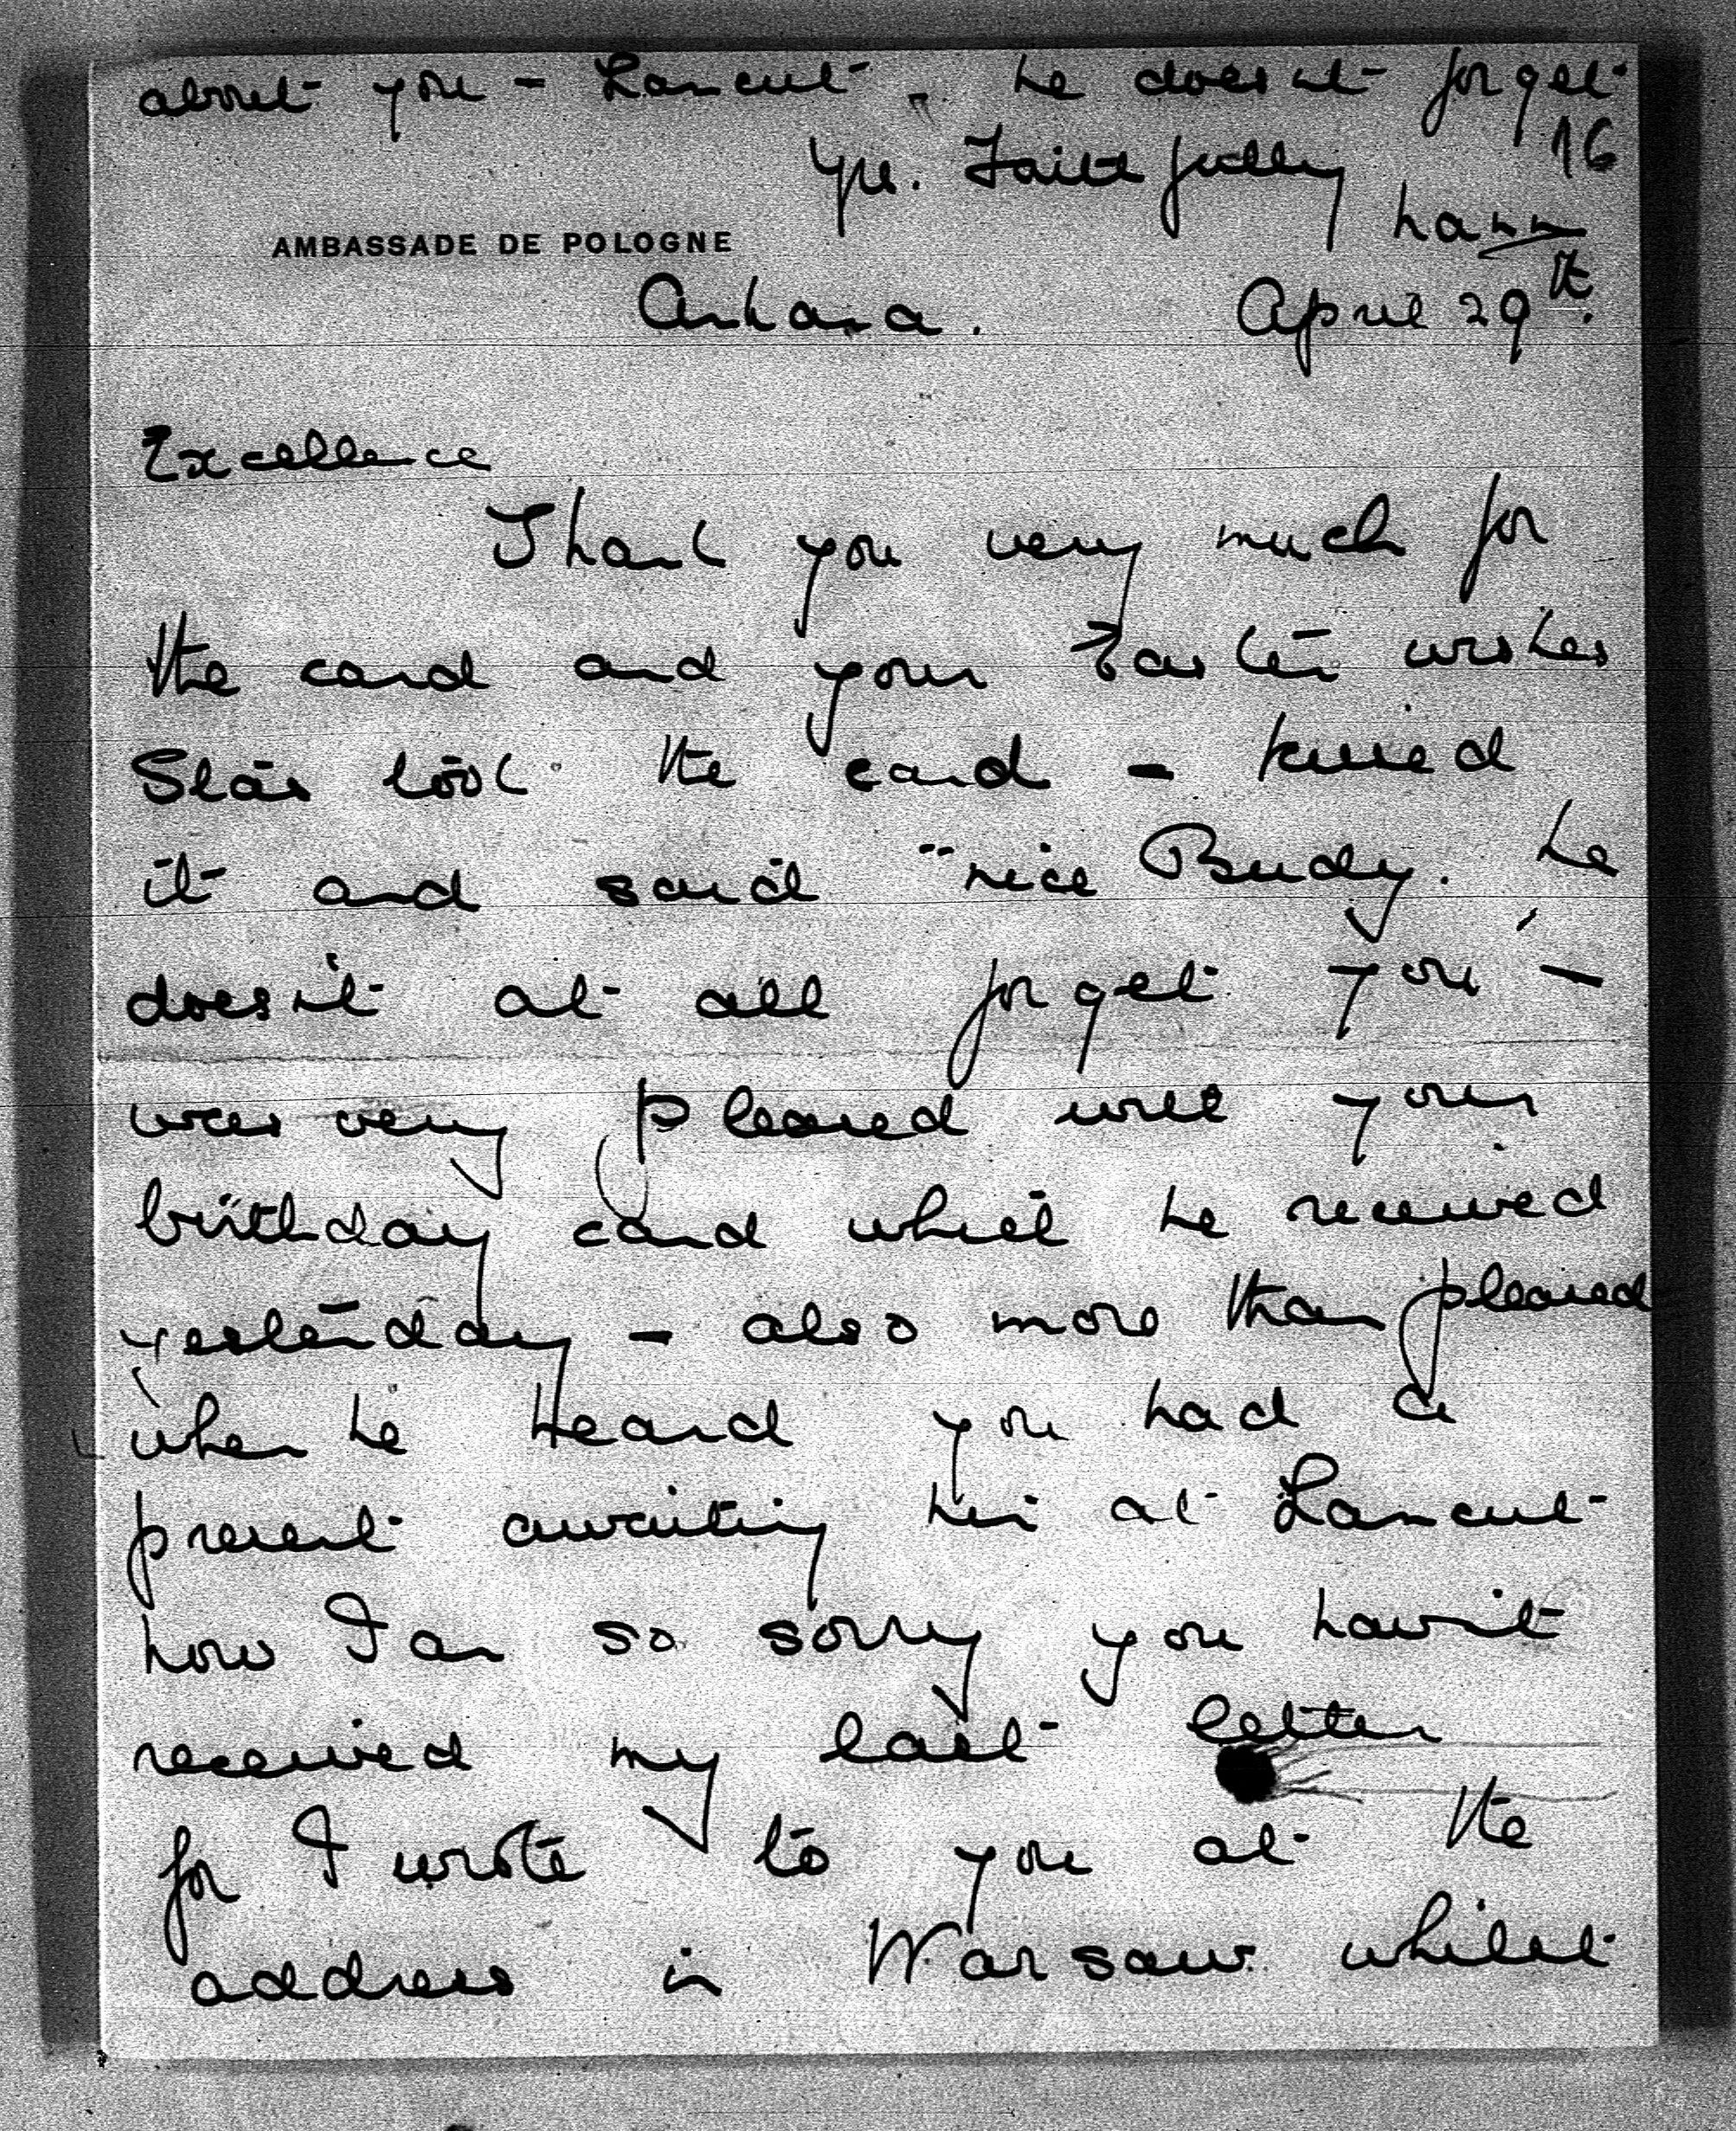 about you - Lancut. he doesn't forget
yrs. Faithfully 16
AMBASSADE DE POLOGNE
Ankara. April 29th.
Excellence
Thank you very much for
the card and your Easter wishes
Stas took the card - kissed
it and said "nice Budy. he
doesn't at all forget you -
was very pleased with your
birthday card which he received
yesterday - also more than pleased
when he heard you had a
present awaiting him at Lancut
now I am so sorry you havn't
received my last letter
for I wrote to you at the
address in Warsaw whilst